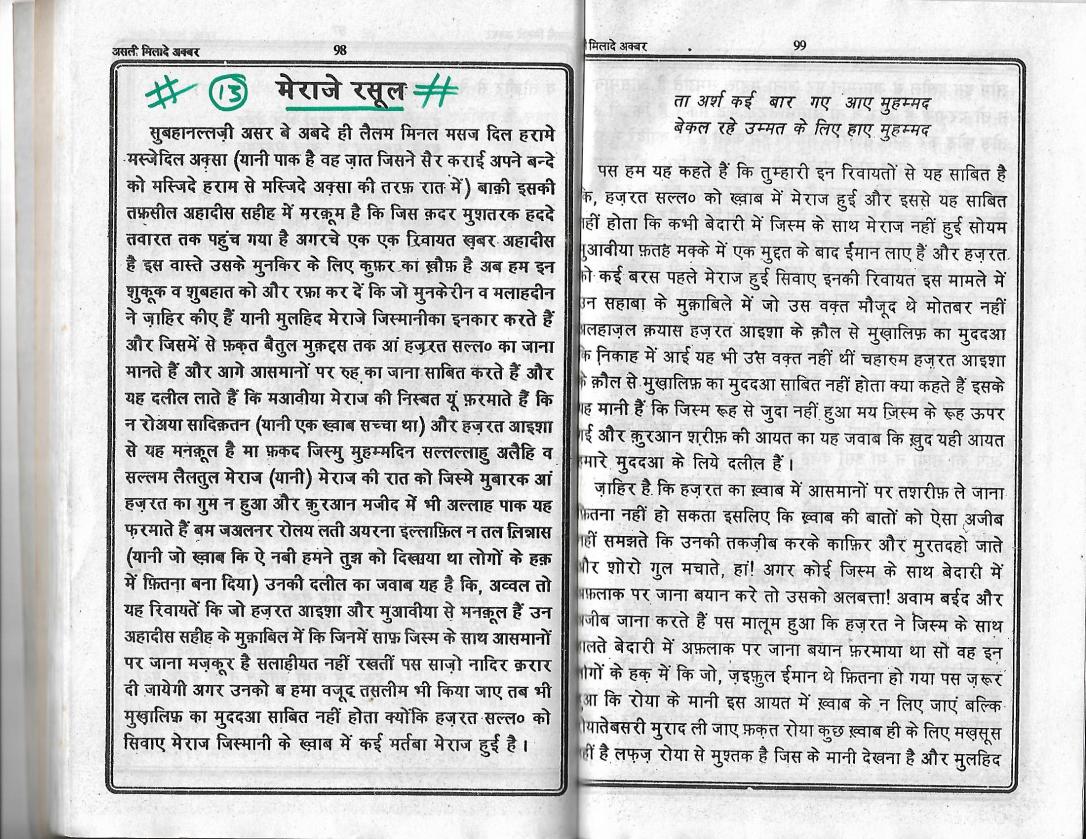 असली मिलादे अक्बर 98
# 13 मेराजे रसूल #
सुबहानल्लज़ी असर बे अबदे ही लैलम मिनल मसज दिल हरामे
मस्जेदिल अक़्सा (यानी पाक है वह ज़ात जिसने सैर कराई अपने बन्दे
को मस्जिदे हराम से मस्जिदे अक़्सा की तरफ़ रात में) बाक़ी इसकी
तफ़सील अहादीस सहीह में मरक़ूम है कि जिस क़दर मुशतरक हददे
तवारत तक पहुंच गया है अगरचे एक एक रिवायत ख़बर अहादीस
है इस वास्ते उसके मुनकिर के लिए कुफ़र का ख़ौफ़ है अब हम इन
शुकूक व शुबहात को और रफ़ा कर दें कि जो मुनकेरीन व मलाहदीन
ने ज़ाहिर कीए हैं यानी मुलहिद मेराजे जिस्मानीका इनकार करते हैं
और जिसमें से फ़क़त बैतुल मुक़द्दस तक आं हज़रत सल्ल० का जाना
मानते हैं और आगे आसमानों पर रुह का जाना साबित करते हैं और
यह दलील लाते हैं कि मआवीया मेराज की निस्बत यूं फ़रमाते हैं कि
न रोअया सादिक़तन (यानी एक ख्वाब सच्चा था) और हज़रत आइशा
से यह मनक़ूल है मा फ़कद जिस्मु मुहम्मदिन सल्लल्लाहु अलैहि व
सल्लम लैलतुल मेराज (यानी) मेराज की रात को जिस्मे मुबारक आं
हज़रत का गुम न हुआ और क़ुरआन मजीद में भी अल्लाह पाक यह
फ़रमाते हैं बम जअलनर रोलय लती अयरना इल्लाफ़िल न तल लिन्नास
(यानी जो ख्वाब कि ऐ नबी हमने तुझ को दिखाया था लोगों के हक़
में फ़ितना बना दिया) उनकी दलील का जवाब यह है कि, अव्वल तो
यह रिवायतें कि जो हज़रत आइशा और मुआवीया से मनक़ूल हैं उन
अहादीस सहीह के मुक़ाबिल में कि जिनमें साफ़ जिस्म के साथ आसमानों
पर जाना मज़कूर है सलाहीयत नहीं रखतीं पस साज़ो नादिर क़रार
दी जायेगी अगर उनको ब हमा वजूद तसलीम भी किया जाए तब भी
मुख़ालिफ़ का मुददआ साबित नहीं होता क्योंकि हज़रत सल्ल० को
सिवाए मेराज जिस्मानी के ख्वाब में कई मर्तबा मेराज हुई है ।
मिलादे अक्बर 99
ता अर्श कई बार गए आए मुहम्मद
बेकल रहे उम्मत के लिए हाए मुहम्मद
पस हम यह कहते हैं कि तुम्हारी इन रिवायतों से यह साबित है
कि, हज़रत सल्ल० को ख्वाब में मेराज हुई और इससे यह साबित
नहीं होता कि कभी बेदारी में जिस्म के साथ मेराज नहीं हुई सोयम
मुआवीया फ़तह मक्के में एक मुद्दत के बाद ईमान लाए हैं और हज़रत
को कई बरस पहले मेराज हुई सिवाए इनकी रिवायत इस मामले में
उन सहाबा के मुक़ाबिले में जो उस वक्त मौजूद थे मोतबर नहीं
अलहाज़ल क़यास हज़रत आइशा के क़ौल से मुख़ालिफ़ का मुददआ
कि निकाह में आई यह भी उस वक्त नहीं थीं चहारुम हज़रत आइशा
के क़ौल से मुख़ालिफ़ का मुददआ साबित नहीं होता क्या कहते हैं इसके
यह मानी हैं कि जिस्म रूह से जुदा नहीं हुआ मय ज़िस्म के रूह ऊपर
गई और क़ुरआन शरीफ़ की आयत का यह जवाब कि ख़ुद यही आयत
हमारे मुददआ के लिये दलील हैं ।
ज़ाहिर है कि हज़रत का ख़्वाब में आसमानों पर तशरीफ़ ले जाना
फ़ितना नहीं हो सकता इसलिए कि ख्वाब की बातों को ऐसा अजीब
नहीं समझते कि उनकी तकज़ीब करके काफ़िर और मुरतदहो जाते
और शोरो गुल मचाते, हां! अगर कोई जिस्म के साथ बेदारी में
अफ़लाक पर जाना बयान करे तो उसको अलबत्ता! अवाम बईद और
अजीब जाना करते हैं पस मालूम हुआ कि हज़रत ने जिस्म के साथ
हालते बेदारी में अफ़लाक पर जाना बयान फ़रमाया था सो वह इन
लोगों के हक़ में कि जो, ज़इफ़ुल ईमान थे फ़ितना हो गया पस ज़रूर
हुआ कि रोया के मानी इस आयत में ख़्वाब के न लिए जाएं बल्कि
रोयातेबसरी मुराद ली जाए फ़क़त रोया कुछ ख़्वाब ही के लिए मखसूस
नहीं है लफ़ज़ रोया से मुश्तक है जिस के मानी देखना है और मुलहिद